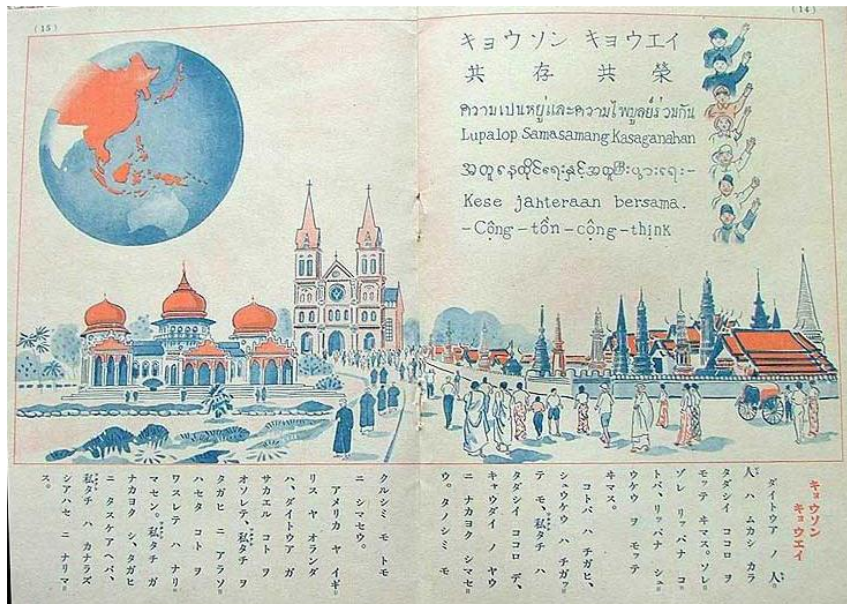 (14)
キョウソン キョウエイ
共 存 共 榮
ความเปนหยู่และความไพบูลย์ร่วมกัน
Lupalop Samasamang Kasaganahan
Kese jahteraan bersama.
-Cộng-tồn-cộng-thịnk
キョウソン
キョウエイ
ダイトウア ノ 人=
ハ ムカシ カラ
タダシイ ココロ ヲ
モッテ ヰマス。ソレ=
ゾレ リッパナ コ=
トバ、リッパナ シュ=
ウケウ ヲ モッテ
ヰマス。
コトバ ハ チガヒ、
シュウケウ ハ チガッ=
テ モ、私タチ ハ
タダシイ ココロ デ、
キャウダイ ノ ヤウ
ニ ナカヨク シマセ=
ウ。タノシミ モ
(15)
クルシミ モ トモ
ニ シマセウ。
アメリカ ヤ イギ=
リス ヤ オランダ
ハ、ダイトウア ガ
サカエル コト ヲ
オソレテ、私タチ ヲ
タガヒ ニ アラソ=
ハセタ コト ヲ
ワスレテ ハ ナリ=
マセン。私タチ ガ
ナカヨク シ、タガヒ
ニ タスケアヘバ、
私タチ ハ カナラズ
シアハセ ニ ナリマ=
ス。